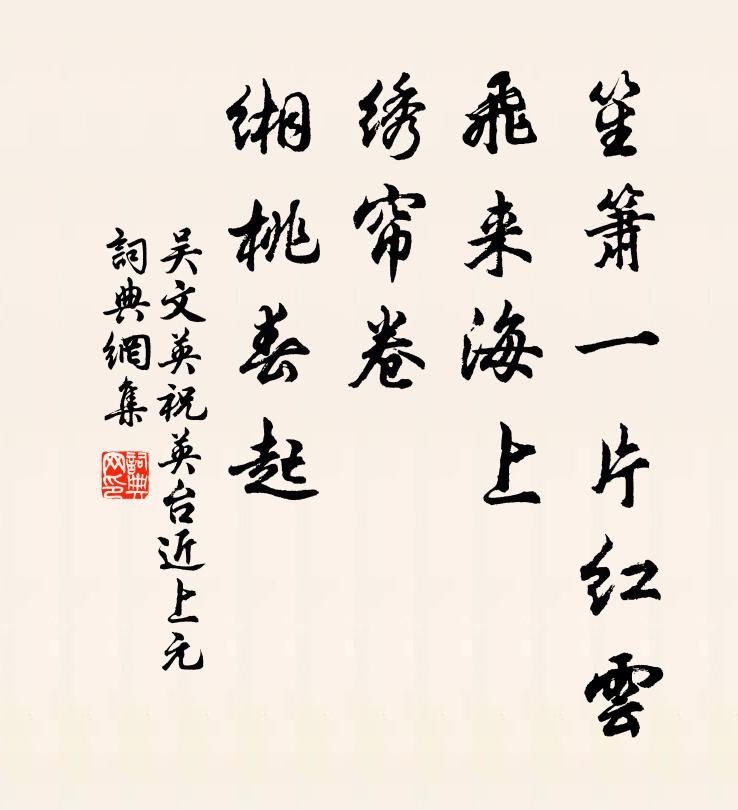 笙箫一片红雲
飛来海上
绣帘卷
缃桃春起
吴文英祝英台近上元
詞典網集
詞典网印